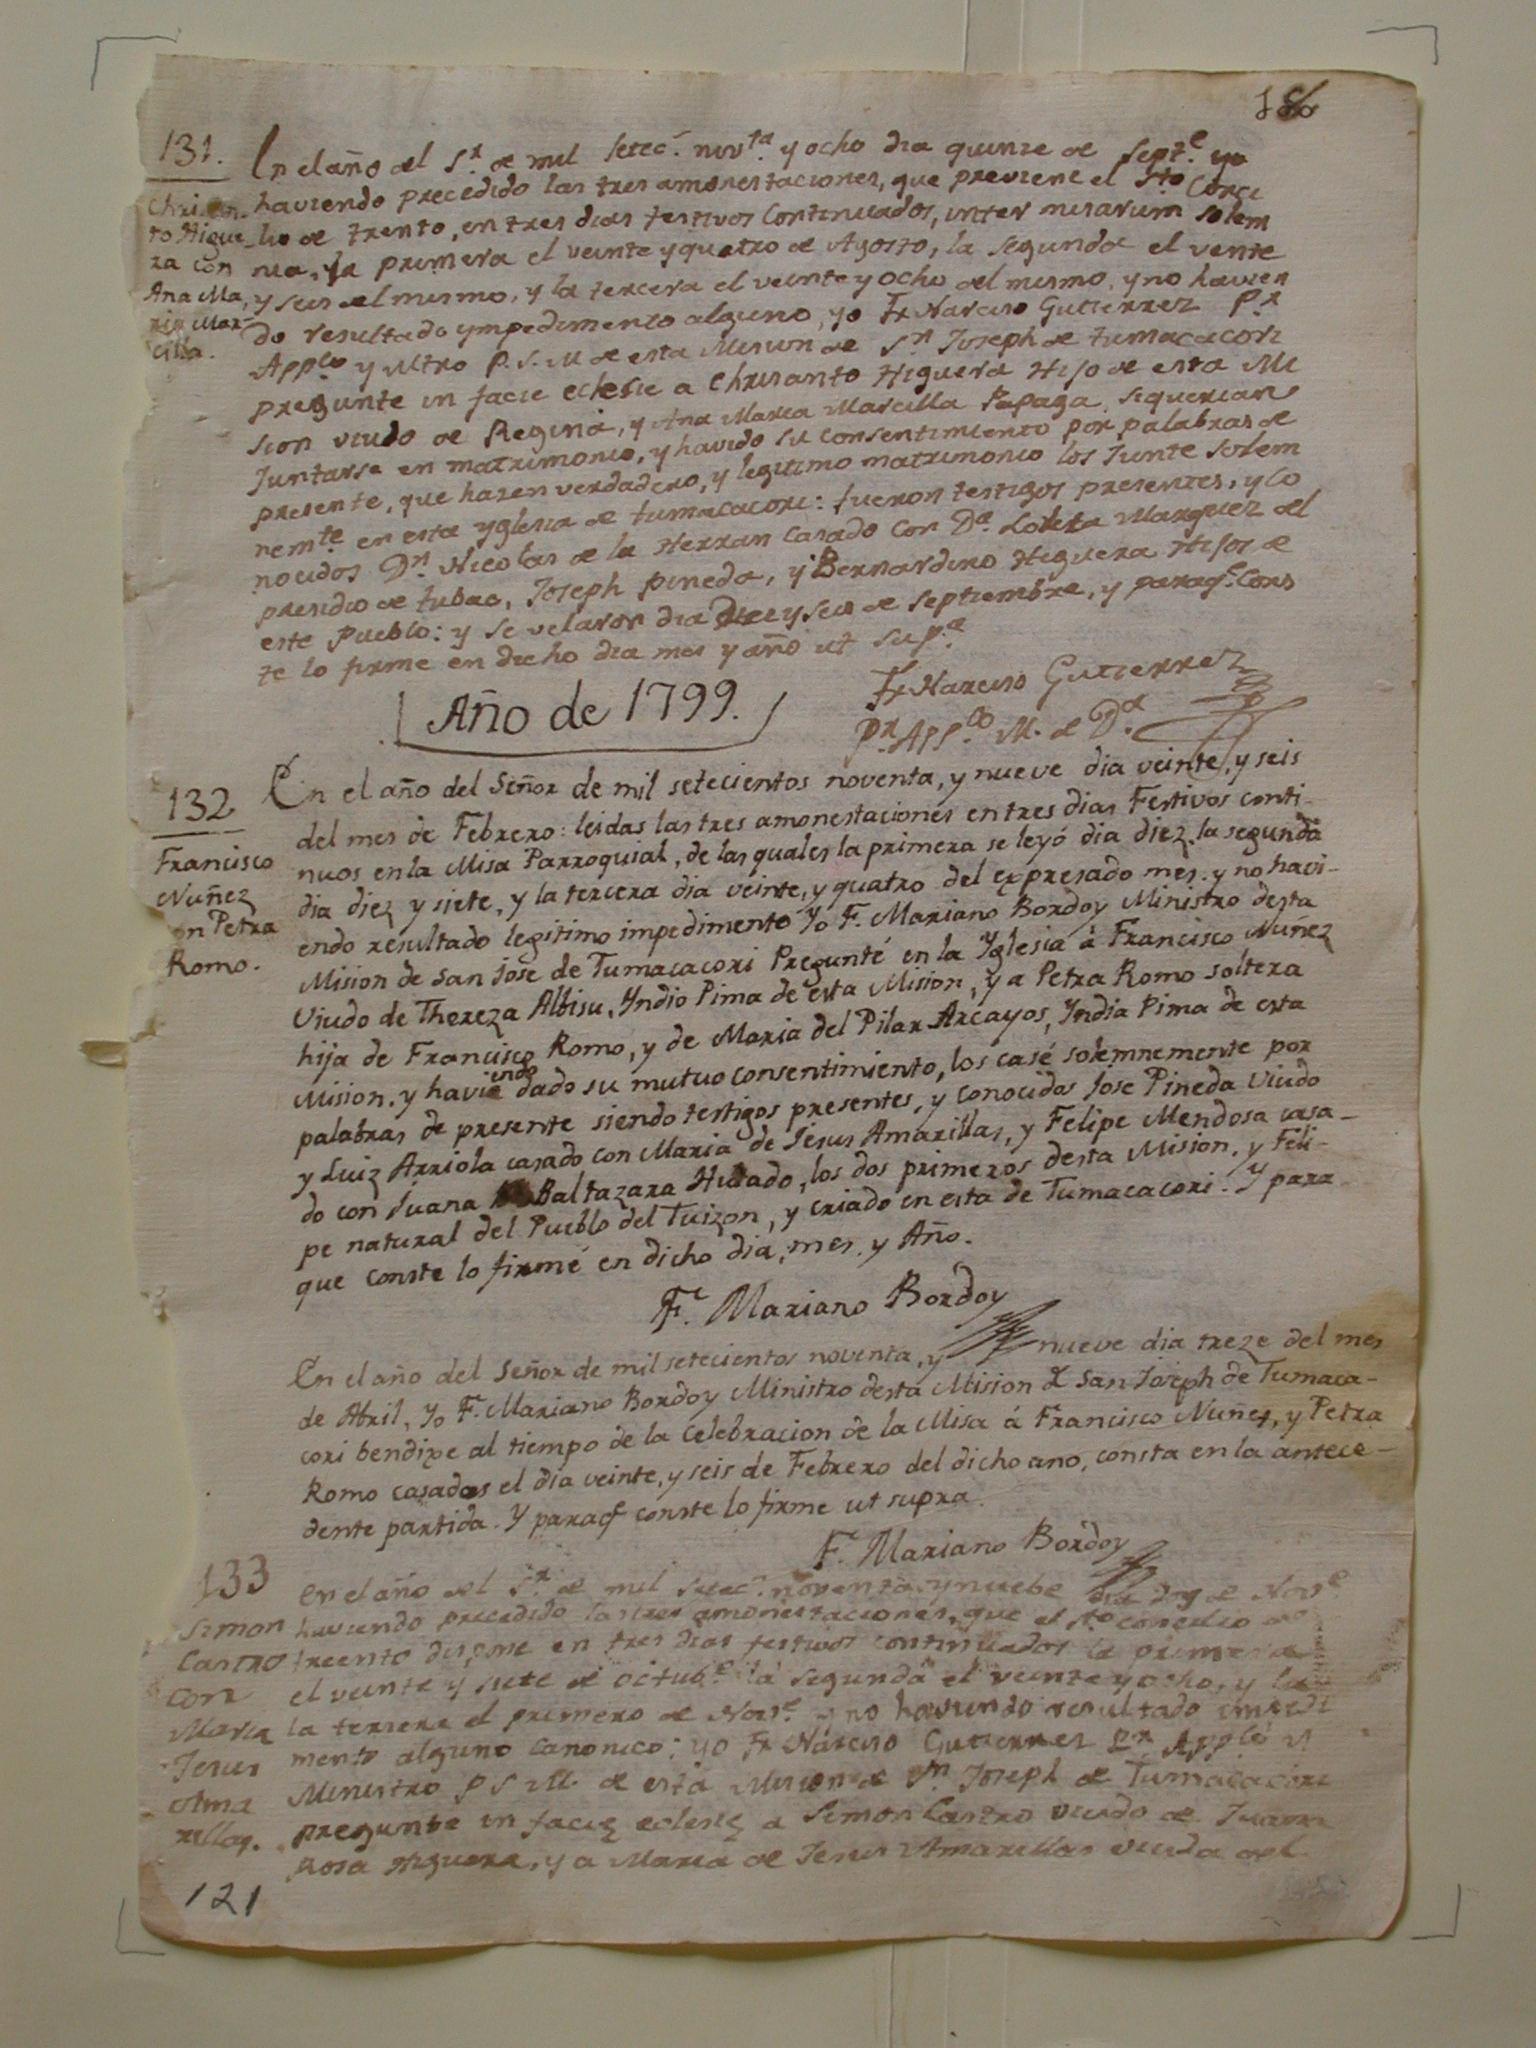 131.
Chrisan
to Higue
ra con
Ana Ma
ria Mar
cilla.
En el año del S.r de mil setec.s nov.ta y ocho dia quinze de Sept.e yo
haviendo precedido las tres amonestaciones, que previene el S.to Conci
lio de trento, en tres dias festivos continuados, inter misarum solem
nia, la primera el veinte y quatro de Agosto, la segunda el vente
y seis del mismo, y la tercera el veinte y ocho del mismo, y no havien
do resultado ympedimento alguno, yo Fr Narciso Gutierrez P.r
App.co y Mtro P. S. M de esta Mision de S.n Joseph de tumacacori
pregunte in facie eclesie a Chrisanto Higuera Hijo de esta Mi
sion viudo de Regina, y Ana Maria Marcilla Papaga, si querian
Juntarse en matrimonio, y havido su consentimiento por palabras de
presente, que hazen verdadero, y legitimo matrimonio los Junte solem
nem.te en esta yglesia de tumacacori: fueron testigos presentes, y co
nocidos D.n Nicolas de la Herran casado con D.a Loreta Marquez del
presidio de tubac, Joseph pineda, y Bernardino Higuera Hijos de
este Pueblo: y se velaron dia Diez y seis de septiembre, y paraq.e cons
te lo firme en dicho dia mes y año ut sup.a
Fr Narciso Gutierrez
Pr. App.co M. de D.a
Año de 1799.
132
Francisco
Nuñez
on Petra
Romo.
En el año del Señor de mil setecientos noventa, y nueve dia veinte, y seis
del mes de Febrero: leidas las tres amonestaciones en tres dias Festivos conti-
nuos en la Misa Parroquial, de las quales la primera se leyó dia diez, la segunda
dia diez y siete, y la tercera dia veinte, y quatro del expresado mes. y no havi-
endo resultado legitimo impedimento Yo F. Mariano Bordoy Ministro desta
Mision de San Jose de Tumacacori Pregunté en la Yglesia á Francisco Nuñez
Viudo de Thereza Albisu, Yndio Pima de esta Mision, y a Petra Romo soltera
hija de Francisco Romo, y de Maria del Pilar Arcayos, Yndia Pima de esta
Mision. y haviendo dado su mutuo consentimiento, los casé solemnemente por
palabras de presente siendo testigos presentes, y conocidos Jose Pineda Viudo
y Luiz Arriola casado con Maria de Jesus Amarillas, y Felipe Mendosa casa-
do con Juana Baltazara Hutado, los dos primeros desta Mision, y Feli-
pe natural del Pueblo del Tuizon, y criado en esta de Tumacacori. Y para
que conste lo firmé en dicho dia, mes, y Año.
F. Mariano Bordoy
En el año del Señor de mil setecientos noventa, y nueve dia treze del mes
de Abril, Yo F. Mariano Bordoy Ministro desta Mision de San Joseph de Tumaca-
cori bendixe al tiempo de la Celebracion de la Misa á Francisco Nuñez, y Petra
Romo casados el dia veinte, y seis de Febrero del dicho ano, consta en la antece-
dente partida. Y paraq conste lo firme ut supra.
F. Mariano Bordoy
133
Simon
Castro
con
Maria
Jesus
Ama
rillas.
en el año del S.r de mil setec.s noventa, y nuebe dia dos de Nov.e
haviendo precedido las tres amonestaciones, que el S.to concilio de
treento dispone en tres dias festivos continuados la primera
el veinte y siete de octub.e la segunda el veinte y ocho, y la
la tersera el primero de Nov.e y no haviendo resultado impedi
mento alguno canonico: yo Fr Narciso Gutierrez Pr App.co y
Ministro P S M. de esta Mision de S.n Joseph de Tumacacori
pregunte in facie eclesie a Simon Castro viudo de Juana
Rosa Higuera, y a Maria de Jesus Amarillas viuda del
121